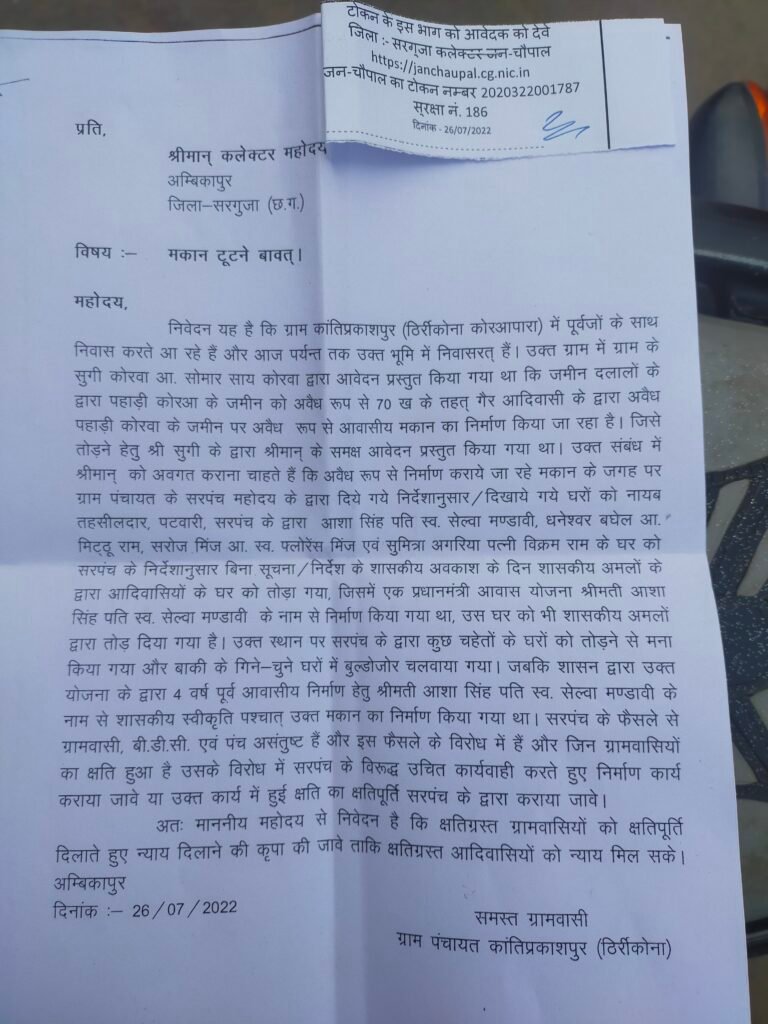 टोकन के इस भाग को आवेदक को देवे
जिला :- सरगुजा कलेक्टर जन-चौपाल
https://janchaupal.cg.nic.in
जन-चौपाल का टोकन नम्बर 2020322001787
सुरक्षा नं. 186
दिनांक - 26/07/2022
प्रति,
श्रीमान् कलेक्टर महोदय
अम्बिकापुर
जिला–सरगुजा (छ.ग.)
विषय :– मकान टूटने बावत्।
महोदय,
निवेदन यह है कि ग्राम कांतिप्रकाशपुर (ठिर्रीकोना कोरआपारा) में पूर्वजों के साथ
निवास करते आ रहे हैं और आज पर्यन्त तक उक्त भूमि में निवासरत् हैं। उक्त ग्राम में ग्राम के
सुगी कोरवा आ. सोमार साय कोरवा द्वारा आवेदन प्रस्तुत किया गया था कि जमीन दलालों के
द्वारा पहाड़ी कोरआ के जमीन को अवैध रूप से 70 ख के तहत् गैर आदिवासी के द्वारा अवैध
पहाड़ी कोरवा के जमीन पर अवैध रूप से आवासीय मकान का निर्माण किया जा रहा है। जिसे
तोड़ने हेतु श्री सुगी के द्वारा श्रीमान् के समक्ष आवेदन प्रस्तुत किया गया था। उक्त संबंध में
श्रीमान् को अवगत कराना चाहते हैं कि अवैध रूप से निर्माण कराये जा रहे मकान के जगह पर
ग्राम पंचायत के सरपंच महोदय के द्वारा दिये गये निर्देशानुसार/दिखाये गये घरों को नायब
तहसीलदार, पटवारी, सरपंच के द्वारा आशा सिंह पति स्व. सेल्वा मण्डावी, धनेश्वर बघेल आ.
मिट्ठू राम, सरोज मिंज आ. स्व. फ्लोरेंस मिंज एवं सुमित्रा अगरिया पत्नी विक्रम राम के घर को
सरपंच के निर्देशानुसार बिना सूचना/निर्देश के शासकीय अवकाश के दिन शासकीय अमलों के
द्वारा आदिवासियों के घर को तोड़ा गया, जिसमें एक प्रधानमंत्री आवास योजना श्रीमती आशा
सिंह पति स्व. सेल्वा मण्डावी के नाम से निर्माण किया गया था, उस घर को भी शासकीय अमलों
द्वारा तोड़ दिया गया है। उक्त स्थान पर सरपंच के द्वारा कुछ चहेतों के घरों को तोड़ने से मना
किया गया और बाकी के गिने–चुने घरों में बुल्डोजोर चलवाया गया। जबकि शासन द्वारा उक्त
योजना के द्वारा 4 वर्ष पूर्व आवासीय निर्माण हेतु श्रीमती आशा सिंह पति स्व. सेल्वा मण्डावी के
नाम से शासकीय स्वीकृति पश्चात् उक्त मकान का निर्माण किया गया था। सरपंच के फैसले से
ग्रामवासी, बी.डी.सी. एवं पंच असंतुष्ट हैं और इस फैसले के विरोध में हैं और जिन ग्रामवासियों
का क्षति हुआ है उसके विरोध में सरपंच के विरूद्ध उचित कार्यवाही करते हुए निर्माण कार्य
कराया जावे या उक्त कार्य में हुई क्षति का क्षतिपूर्ति सरपंच के द्वारा कराया जावे।
अतः माननीय महोदय से निवेदन है कि क्षतिग्रस्त ग्रामवासियों को क्षतिपूर्ति
दिलाते हुए न्याय दिलाने की कृपा की जावे ताकि क्षतिग्रस्त आदिवासियों को न्याय मिल सके।
अम्बिकापुर
दिनांक :– 26/07/2022
समस्त ग्रामवासी
ग्राम पंचायत कांतिप्रकाशपुर (ठिर्रीकोना)